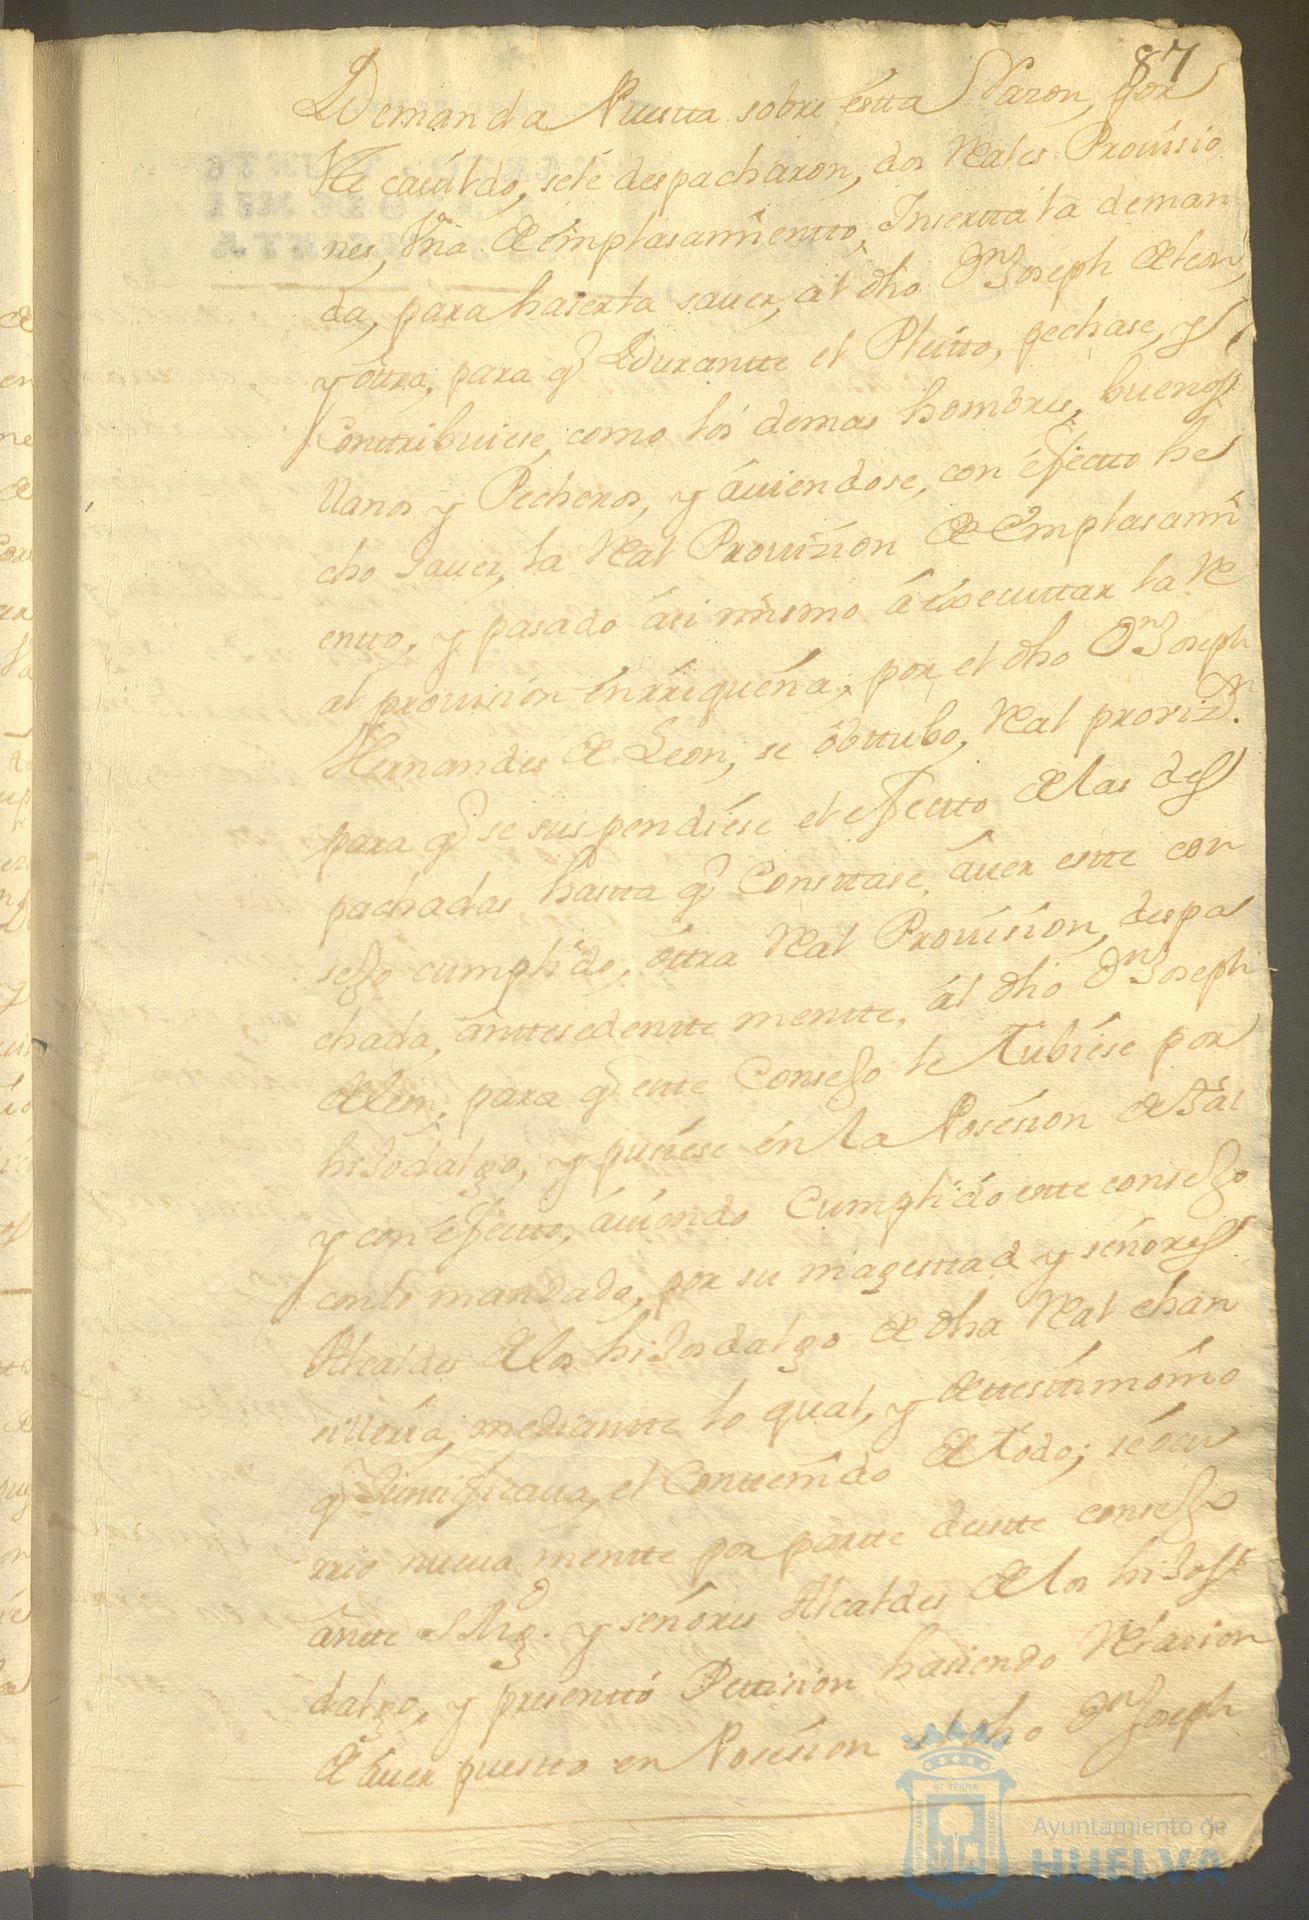 87
Demanda Puesta sobre estta Razon, por
este cavildo, sele despacharon, dos Reales Provisio
nes, Una de emplasamientto, Insertta la deman
da, para haserla saver, al dho Dn Joseph de leon,
y ottra, para q Durantte el Pleitto, pechase, y
Conttribuiese, como los demas hombres, buenos
llanos y Pecheros, y aviendose, con efectto he
cho saver, la Real Provizion de Emplasami
entto, y pasado asi mismo a executtar la Re
al provision enrriqueña, por el dho Dn Joseph
Hernandes de Leon, se obttubo, Real provizn.
para q se suspendiese el efectto de las des
pachadas hastta q Consttase, aver estte con
sejo cumplido, ottra Real Provision, despa
chada, anttesedentte mentte, al dho Dn Joseph
de leon, para q estte Consejo le Tubiese por
hijodalgo, y pusiese en la Posesion de Tal
y con efectto, aviendo Cumplido estte consejo
con lo mandado, por su magesttad y señores
Alcaldes de los hijosdalgo de dha Real chan
silleria, mediantte lo qual, y de testtimonio
q Justtificava, el Conttenido de Todo; se ocu
rrio nueva mentte por partte destte consejo
antte S Mag. y señores Alcaldes de los hijos
dalgo, y presenttó Pettision hasiendo Relasion
de aver puestto en Posesion al dho Dn Joseph
Ayuntamiento de
HUELVA